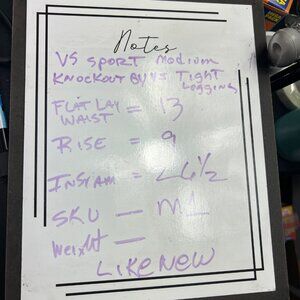 Notes
VS SPORT Medium
KNOCKOUT BY VS Tight
Legging
FLAT LAY = 13
WAIST
RISE = 9
INSEAM = 26 1/2
SKU — M1
Weight —
LIKE NEW